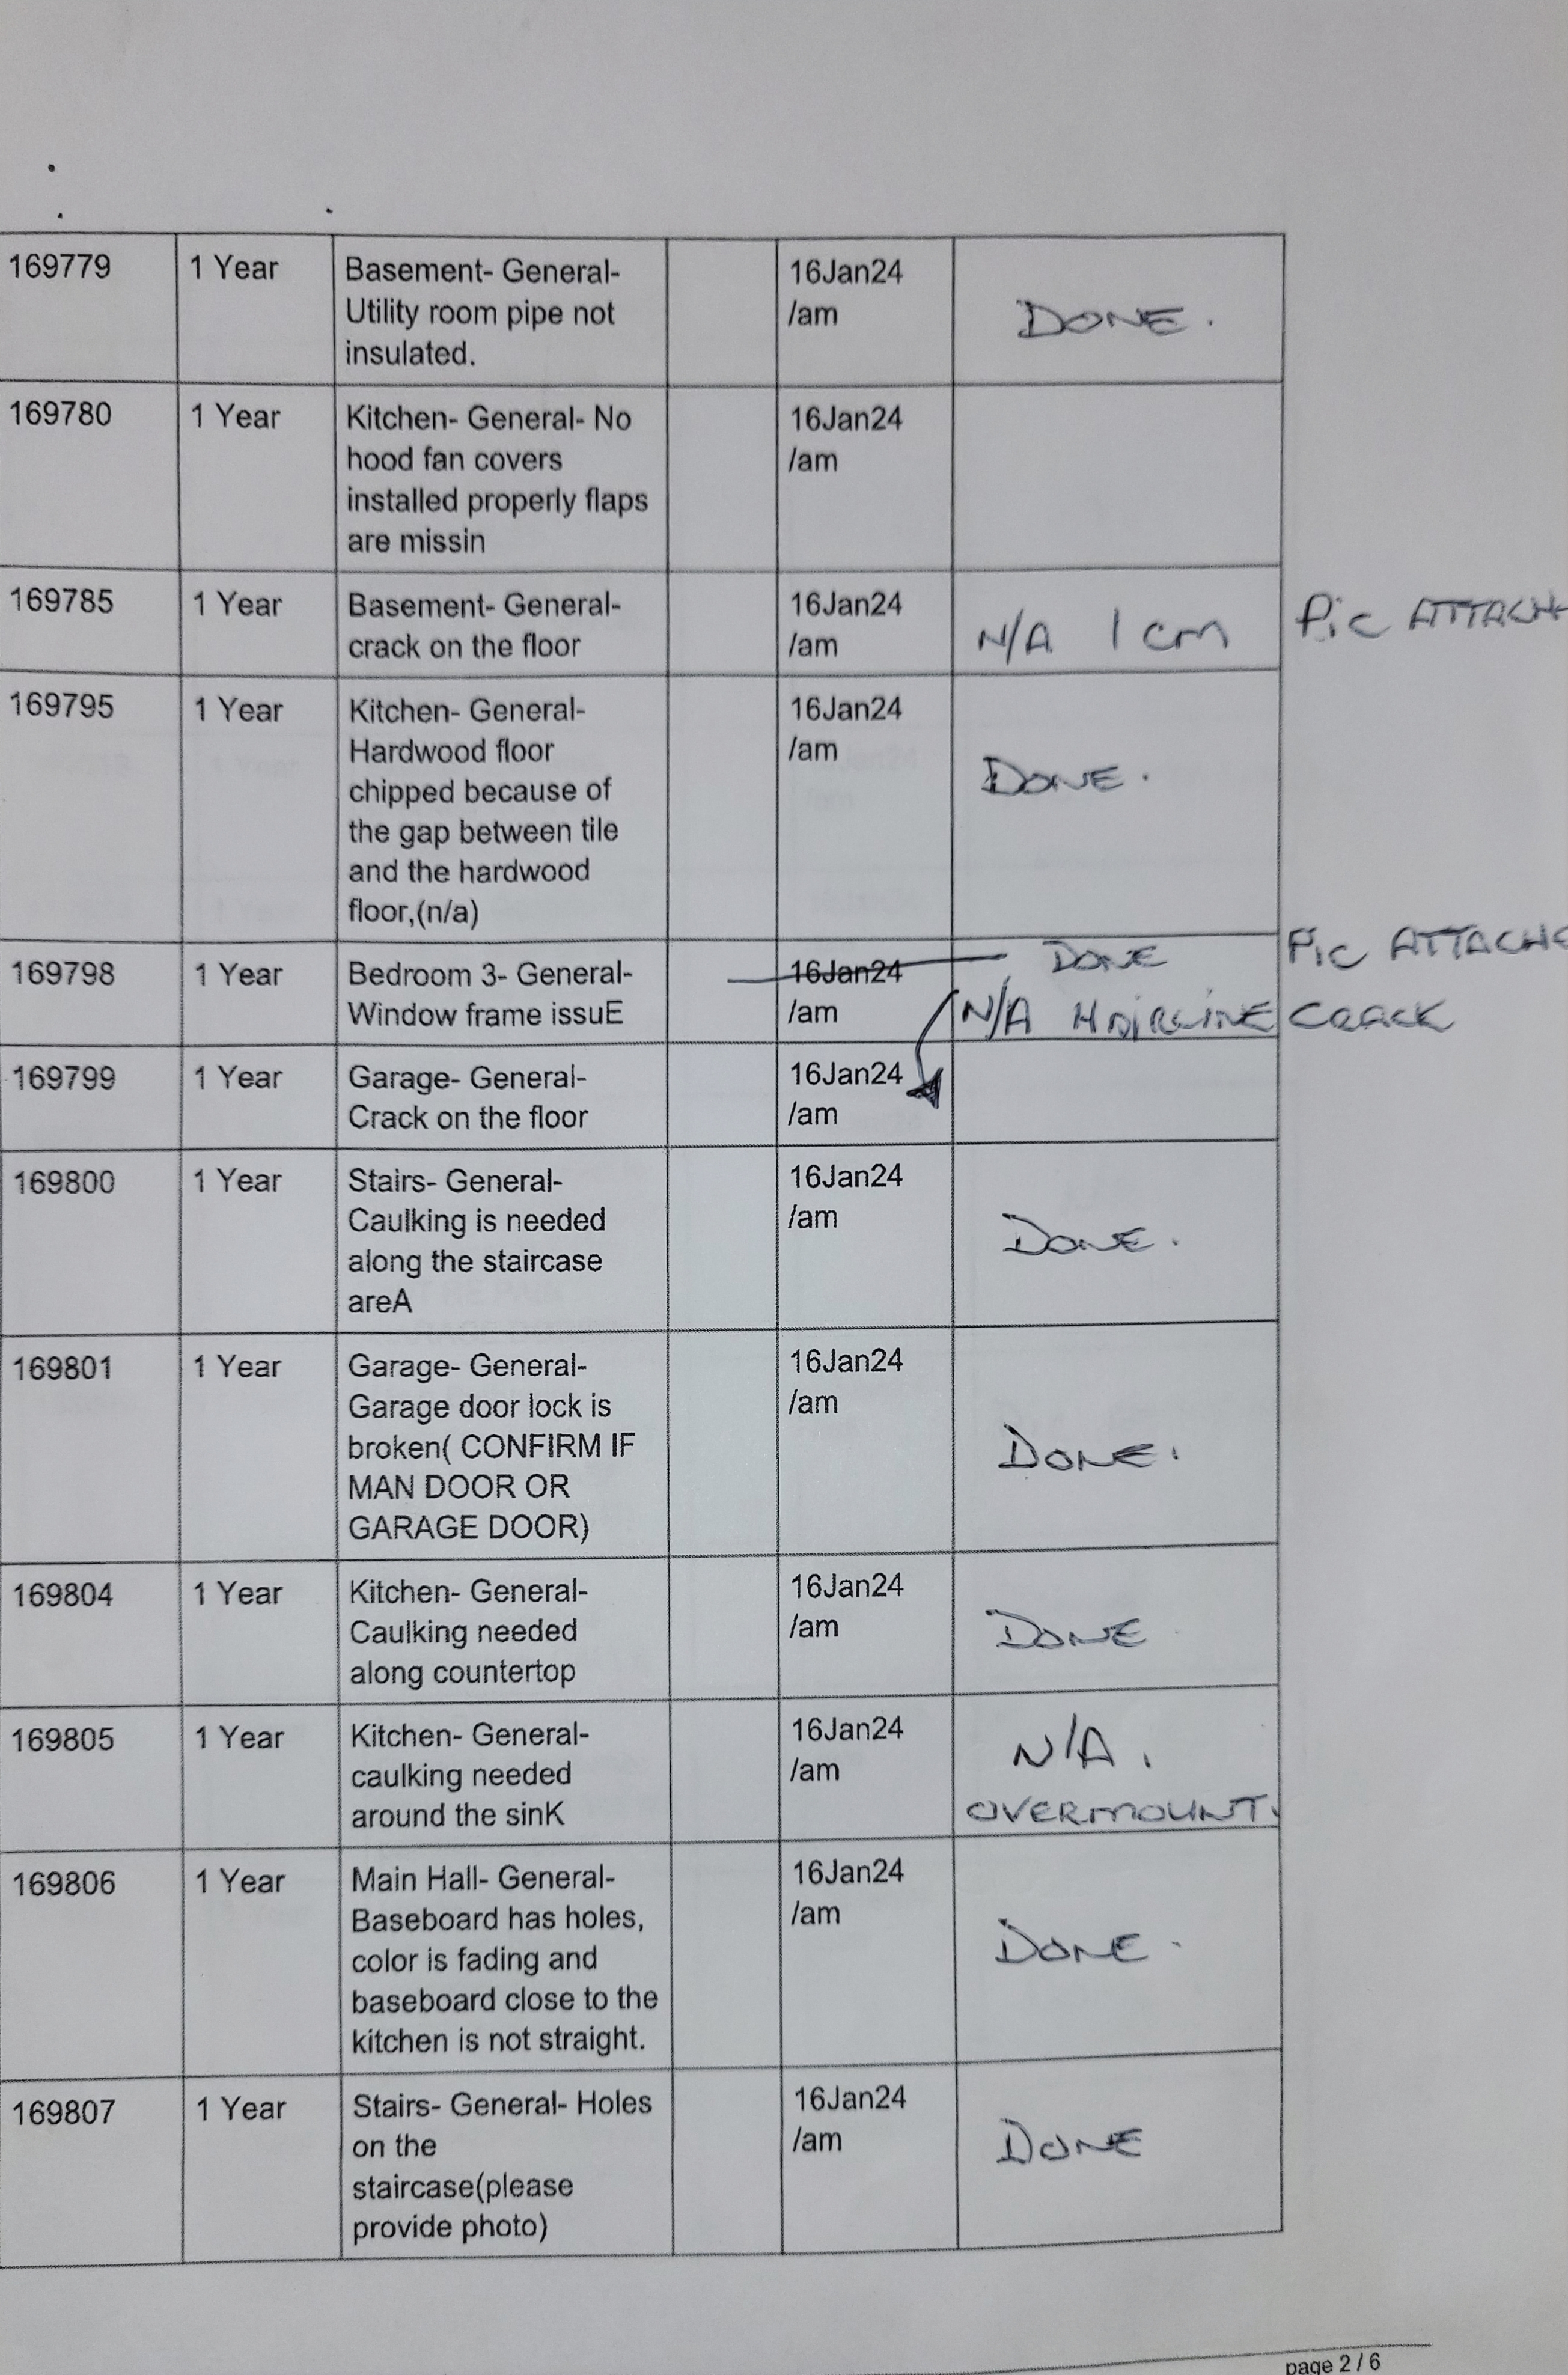 169779 1 Year Basement- General- 16Jan24
Utility room pipe not /am DONE.
insulated.
169780 1 Year Kitchen- General- No 16Jan24
hood fan covers /am
installed properly flaps
are missin
169785 1 Year Basement- General- 16Jan24 Pic ATTACH
crack on the floor /am N/A 1 cm
169795 1 Year Kitchen- General- 16Jan24
Hardwood floor /am DONE.
chipped because of
the gap between tile
and the hardwood
floor,(n/a)
169798 1 Year Bedroom 3- General- 16Jan24 DONE Pic ATTACHE
Window frame issuE /am N/A HAIRLINE CRACK
169799 1 Year Garage- General- 16Jan24
Crack on the floor /am
169800 1 Year Stairs- General- 16Jan24
Caulking is needed /am DONE.
along the staircase
areA
169801 1 Year Garage- General- 16Jan24
Garage door lock is /am
broken( CONFIRM IF DONE.
MAN DOOR OR
GARAGE DOOR)
169804 1 Year Kitchen- General- 16Jan24
Caulking needed /am DONE
along countertop
169805 1 Year Kitchen- General- 16Jan24 N/A.
caulking needed /am
around the sinK OVERMOUNT.
169806 1 Year Main Hall- General- 16Jan24
Baseboard has holes, /am
color is fading and DONE.
baseboard close to the
kitchen is not straight.
169807 1 Year Stairs- General- Holes 16Jan24
on the /am DONE
staircase(please
provide photo)
page 2 / 6